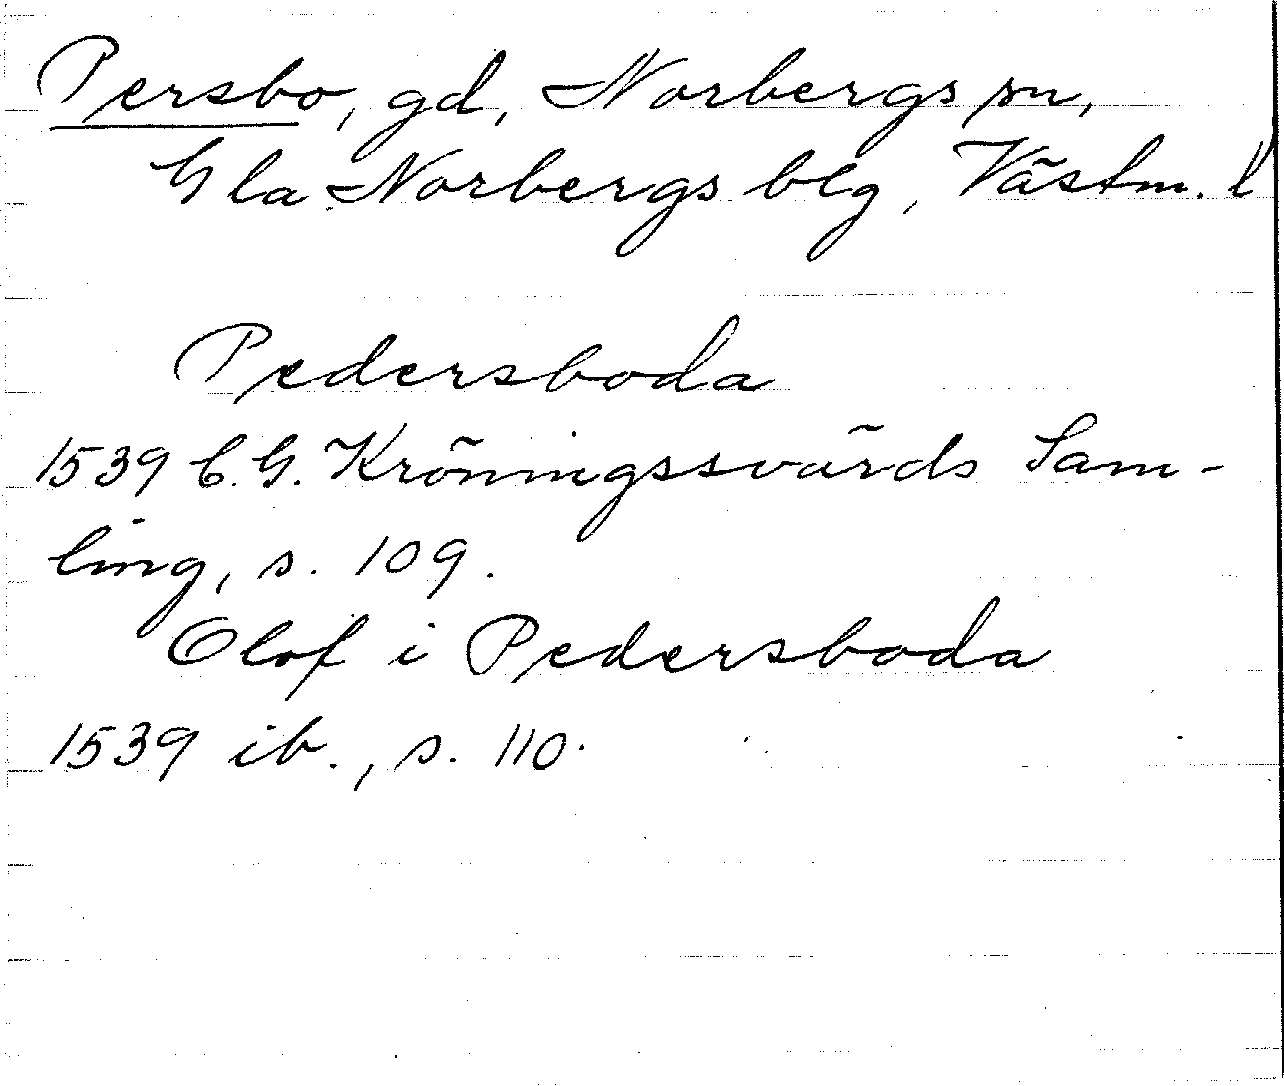 Persbo, gd, Norbergs sn,
Gla Norbergs blg, Västm. l
Pedersboda
1539 C. G. Kröningssvärds Sam-
ling, s. 109.
Olof i Pedersboda
1539 ib., s. 110.